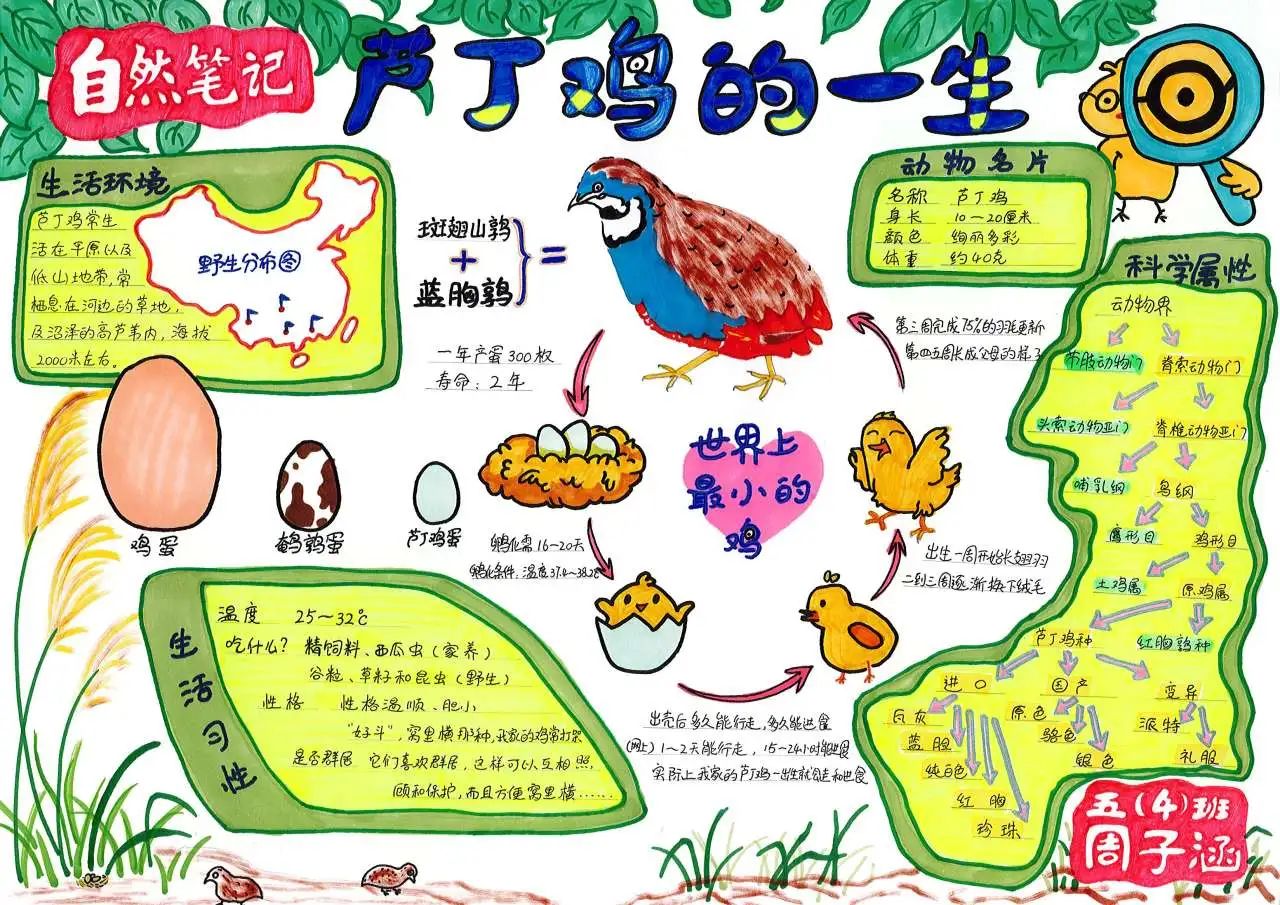 自然笔记
芦丁鸡的一生
生活环境
芦丁鸡常生
活在平原以及
低山地带,常
栖息在河边的草地,
及沼泽的高芦苇内,海拔
2000米左右。
野生分布图
斑翅山鹑
+
蓝胸鹑
=
动物名片
名称 芦丁鸡
身长 10~20厘米
颜色 绚丽多彩
体重 约40克
科学属性
动物界
带股动物门 脊索动物门
头索动物亚门 脊椎动物亚门
哺乳纲 鸟纲
鹰形目 鸡形目
土鸡属 原鸡属
芦丁鸡种 红胸鹑种
进口 国产 变异
瓦灰 原色 派特
蓝胸 骆色 礼服
纯白色 银色
红胸
珍珠
一年产蛋300枚
寿命:2年
第三周完成75%的羽毛更新
第四五周长成父母的样子
世界上
最小的
鸡
鸡蛋
鹌鹑蛋
芦丁鸡蛋
孵化需16~20天
孵化条件:温度37.4~38.2℃
出生一周开始长翅羽
二到三周逐渐换下绒毛
出壳后多久能行走,多久能进食
(网上)1~2天能行走,15~24小时能进食
实际上我家的芦丁鸡一出生就会走和进食
生活习性
温度 25~32℃
吃什么? 精饲料、西瓜虫(家养)
谷粒、草籽和昆虫(野生)
性格 性格温顺、胆小
"好斗",窝里横那种,我家的鸡常打架
是否群居 它们喜欢群居,这样可以互相照
顾和保护,而且方便窝里横……
五(4)班
周子涵